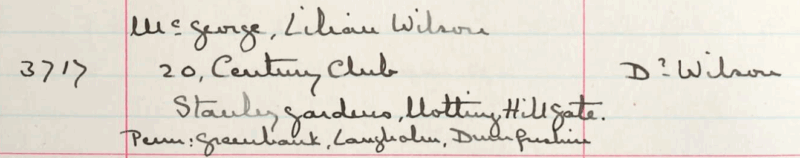 McGeorge, Lilian Wilson
3717 20, Century Club Dr Wilson
Stanley Gardens, Notting Hill Gate.
Perm: Greenbank, Langholm, Dumfriesshire